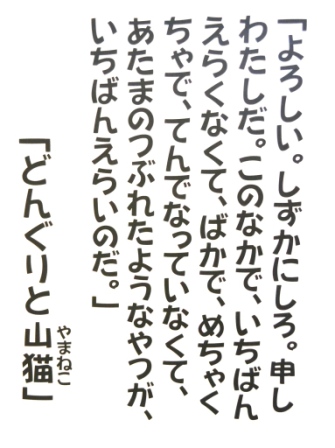 「よろしい。しずかにしろ。申し
わたしだ。このなかで、いちばん
えらくなくて、ばかで、めちゃく
ちゃで、てんでなっていなくて、
あたまのつぶれたようなやつが、
いちばんえらいのだ。」
「どんぐりと山猫」
やまねこ